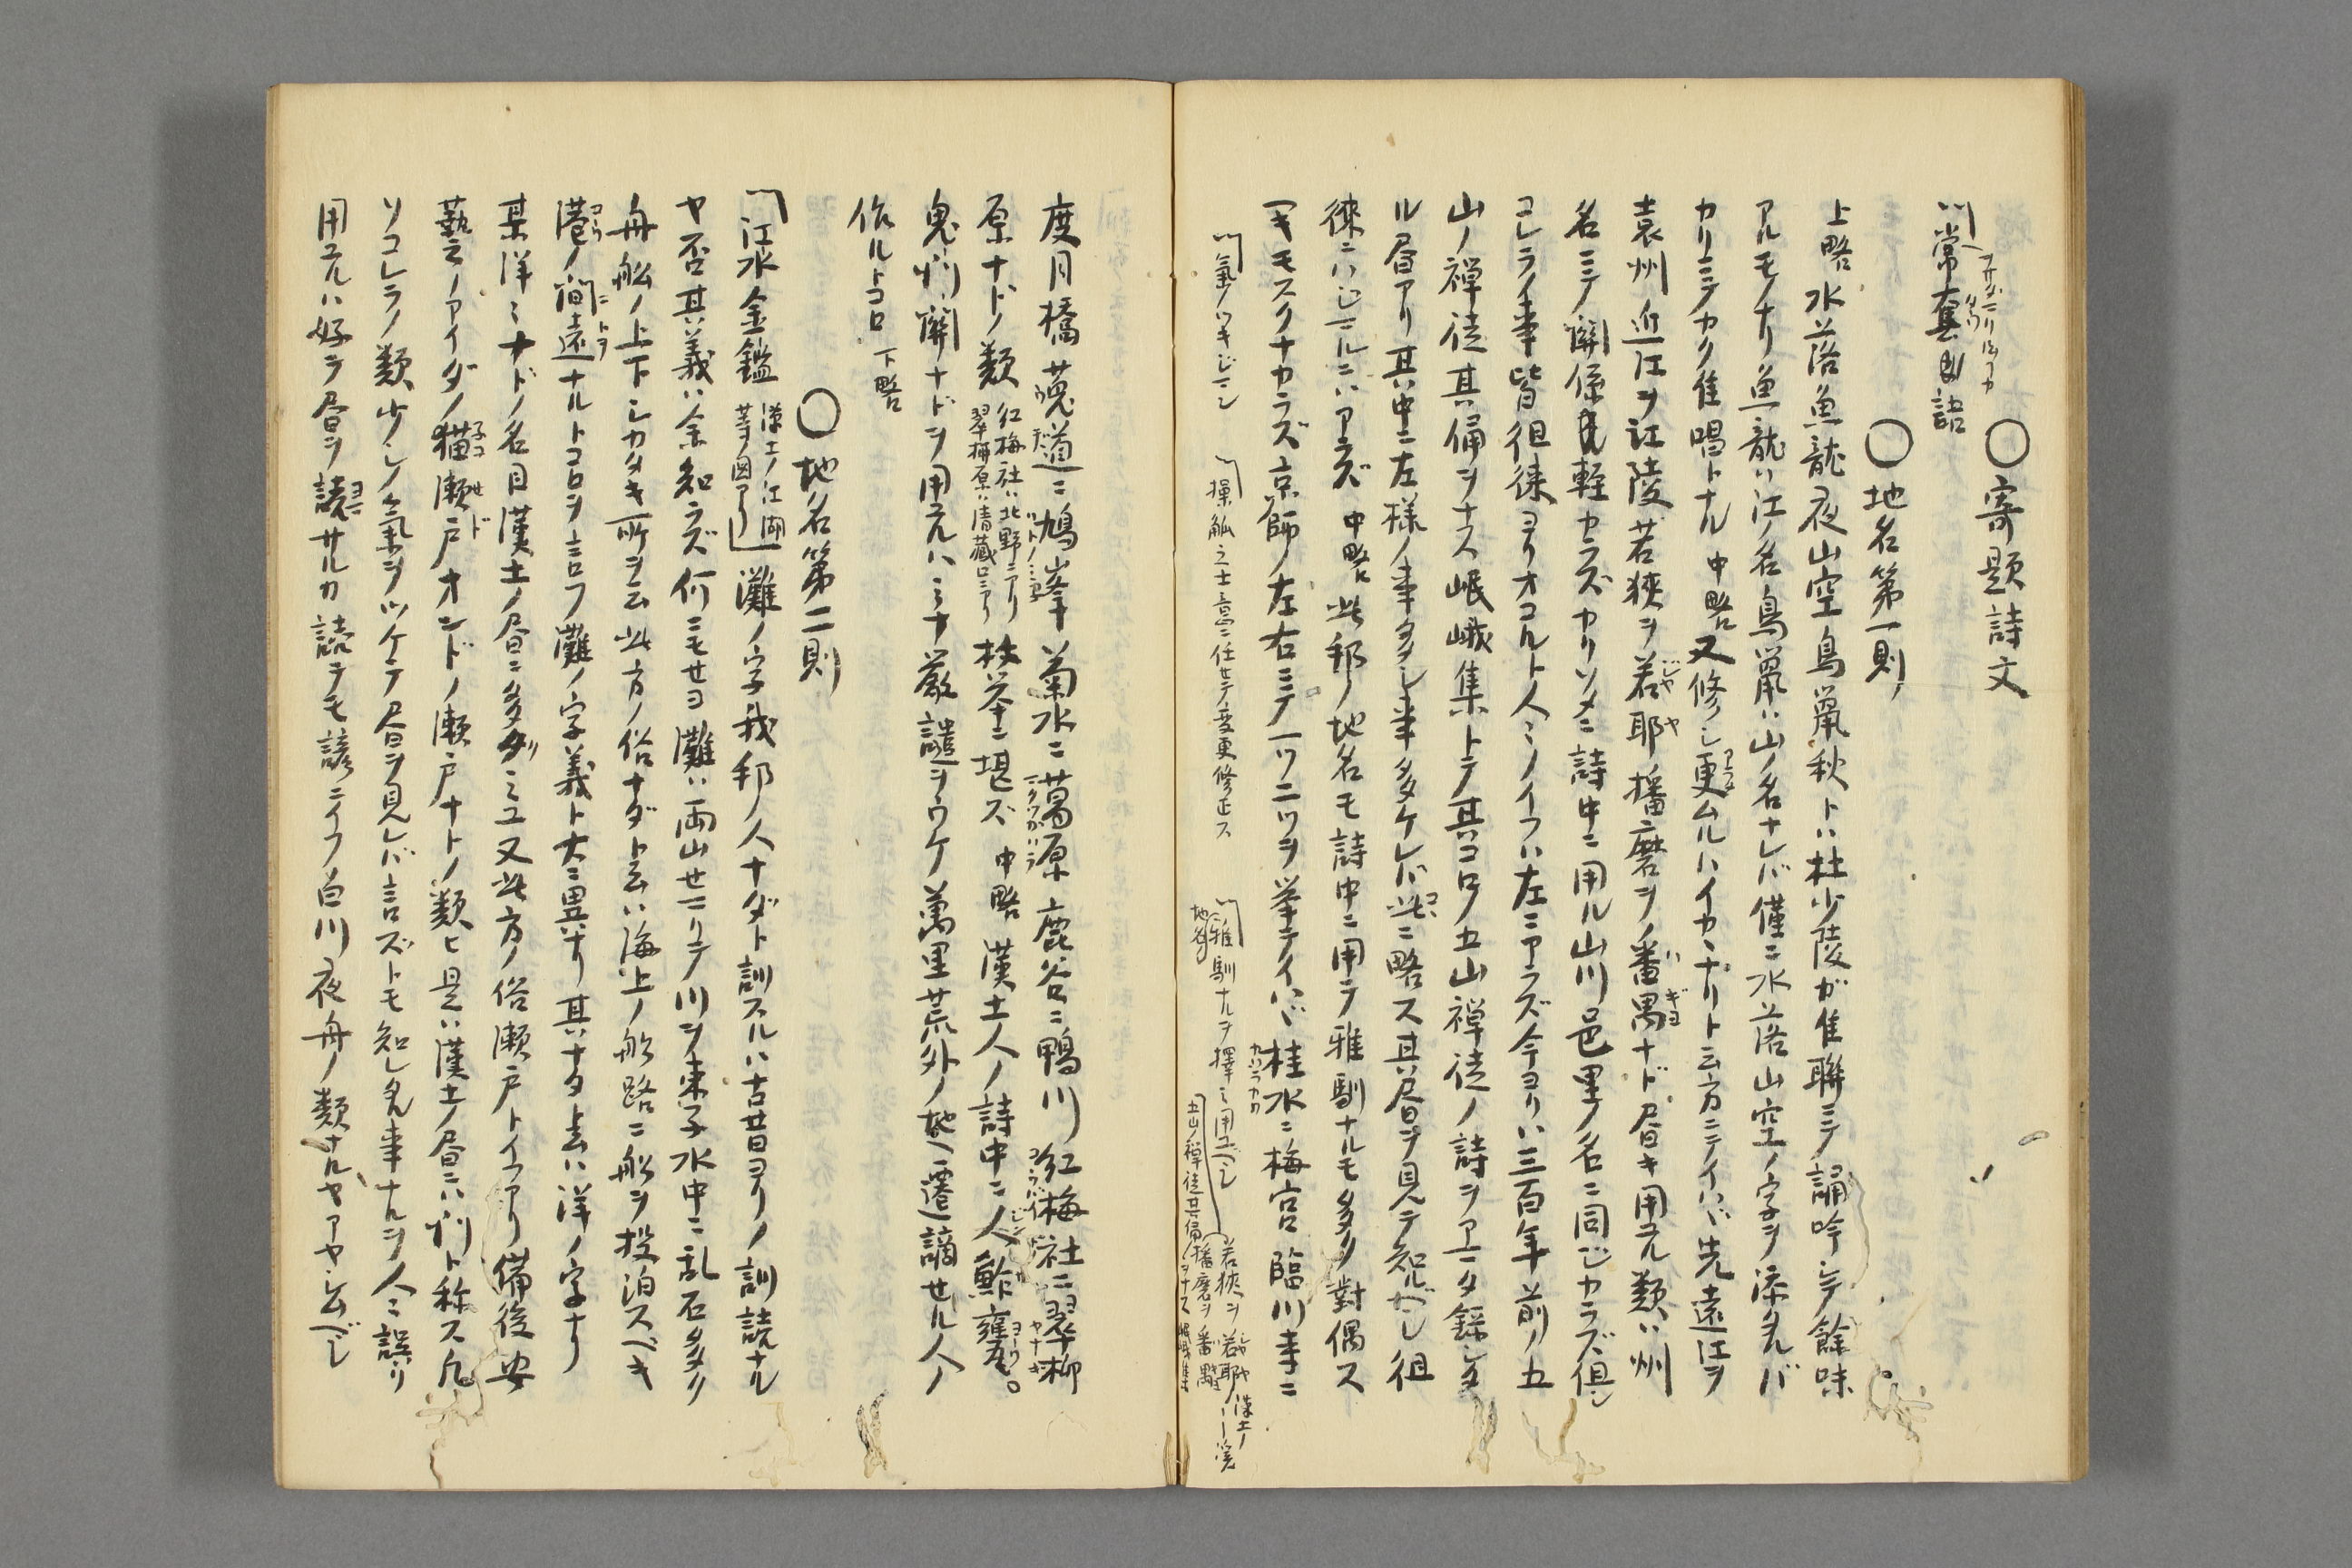 ○寄題詩文
常套語
○地名第一則
上略 水落魚龍夜山空鳥鼠秋トハ杜少陵ガ隹聯ニテ誦吟シテ餘味
アルモノナリ魚龍ハ江ノ名鳥鼠ハ山ノ名ナレバ僅ニ水落山空ノ字ヲ添タルバ
カリニテカク隹唱トナル 中略 又修シ更ムルハイカヾナリト云方ニテイハヾ先遠江ヲ
袁州近江ヲ江陵若狹ヲ若耶播磨ヲ番禺ナド昼キ用ユル類ハ州
名ニテ關係軽カラズカリソメニ詩中ニ用ル山川邑里ノ名ニ同ジカラズ但シ
コレラノ事皆徂徠ヨリオコルト人ミノイフハ左ニアラズ今ヨリハ三百年前ノ五
山ノ禅徒其俑ヲナス岷峨集トテ其コロノ五山禅徒ノ詩ヲアマタ録シタ
ル昼アリ其中ニ左様ノ事多シ事多ケレバ此ニ略ス其昼ヲ見テ知ルベシ徂
徠ニハジマルニハアラズ 中略 此邦ノ地名モ詩中ニ用テ雅馴ナルモ多ク對偶ス
ベキモスクナカラズ京師ノ左右ニテ一ツニツヲ挙テイハヾ桂水ニ梅宮臨川寺ニ
氣ノツキジミシ 操觚之士意ニ任セテ変更修正ス 雅馴ナルヲ擇ミ用ユベシ 若狹ヲ若耶 漢土ノ
地名 五山ノ禅徒其俑ヲナス 播磨ヲ番禺
度月橋莵道ニ鳩峯菊水ニ葛原鹿谷ニ鴨川紅梅社ニ翠柳
原ナドノ類 紅梅社ハ北野ニアリ 枚挙ニ堪ズ 中略 漢土人ノ詩中ニ人鮓甕。
鬼門關ナドヲ用ユルハミナ嚴譴ヲウケ萬里荒外ノ地ヘ遷謫セル人ノ
作ルトコロ 下略
○地名第二則
江水金鑑 漢土ノ江湖 等ノ図アリ 灘ノ字我邦ノ人ナダト訓スルハ古昔ヨリノ訓読ナル
ヤ否其義ハ余知ラズ何ニモセヨ灘ハ両山セマリテ川ヲ束子水中ニ乱石多ク
舟舩ノ上下シカタキ所ヲ云此方ノ俗ナダト云ハ海上ノ舩路ニ舩ヲ投泊スベキ
港ノ間遠ナルトコロヲ言フ灘ノ字義ト大ニ異ナリ其ナダト云ハ洋ノ字ナリ
某洋ミナドノ名目漢土ノ昼ニ多クミユ又此方ノ俗瀬戸トイフアリ備後安
藝ノアイダノ猫瀬戸オンドノ瀬戸ナトノ類ヒ是ハ漢土ノ昼ニハ門ト称ス凡
ソコレラノ類少シ氣ヲツケテ昼ヲ見レバ言ズトモ知レタル事ナルヲ人ミ誤リ
用ユルハ好ラ昼ヲ読サルカ読テモ諺ニイフ白川夜舟ノ類ナルヤアヤシムベシ